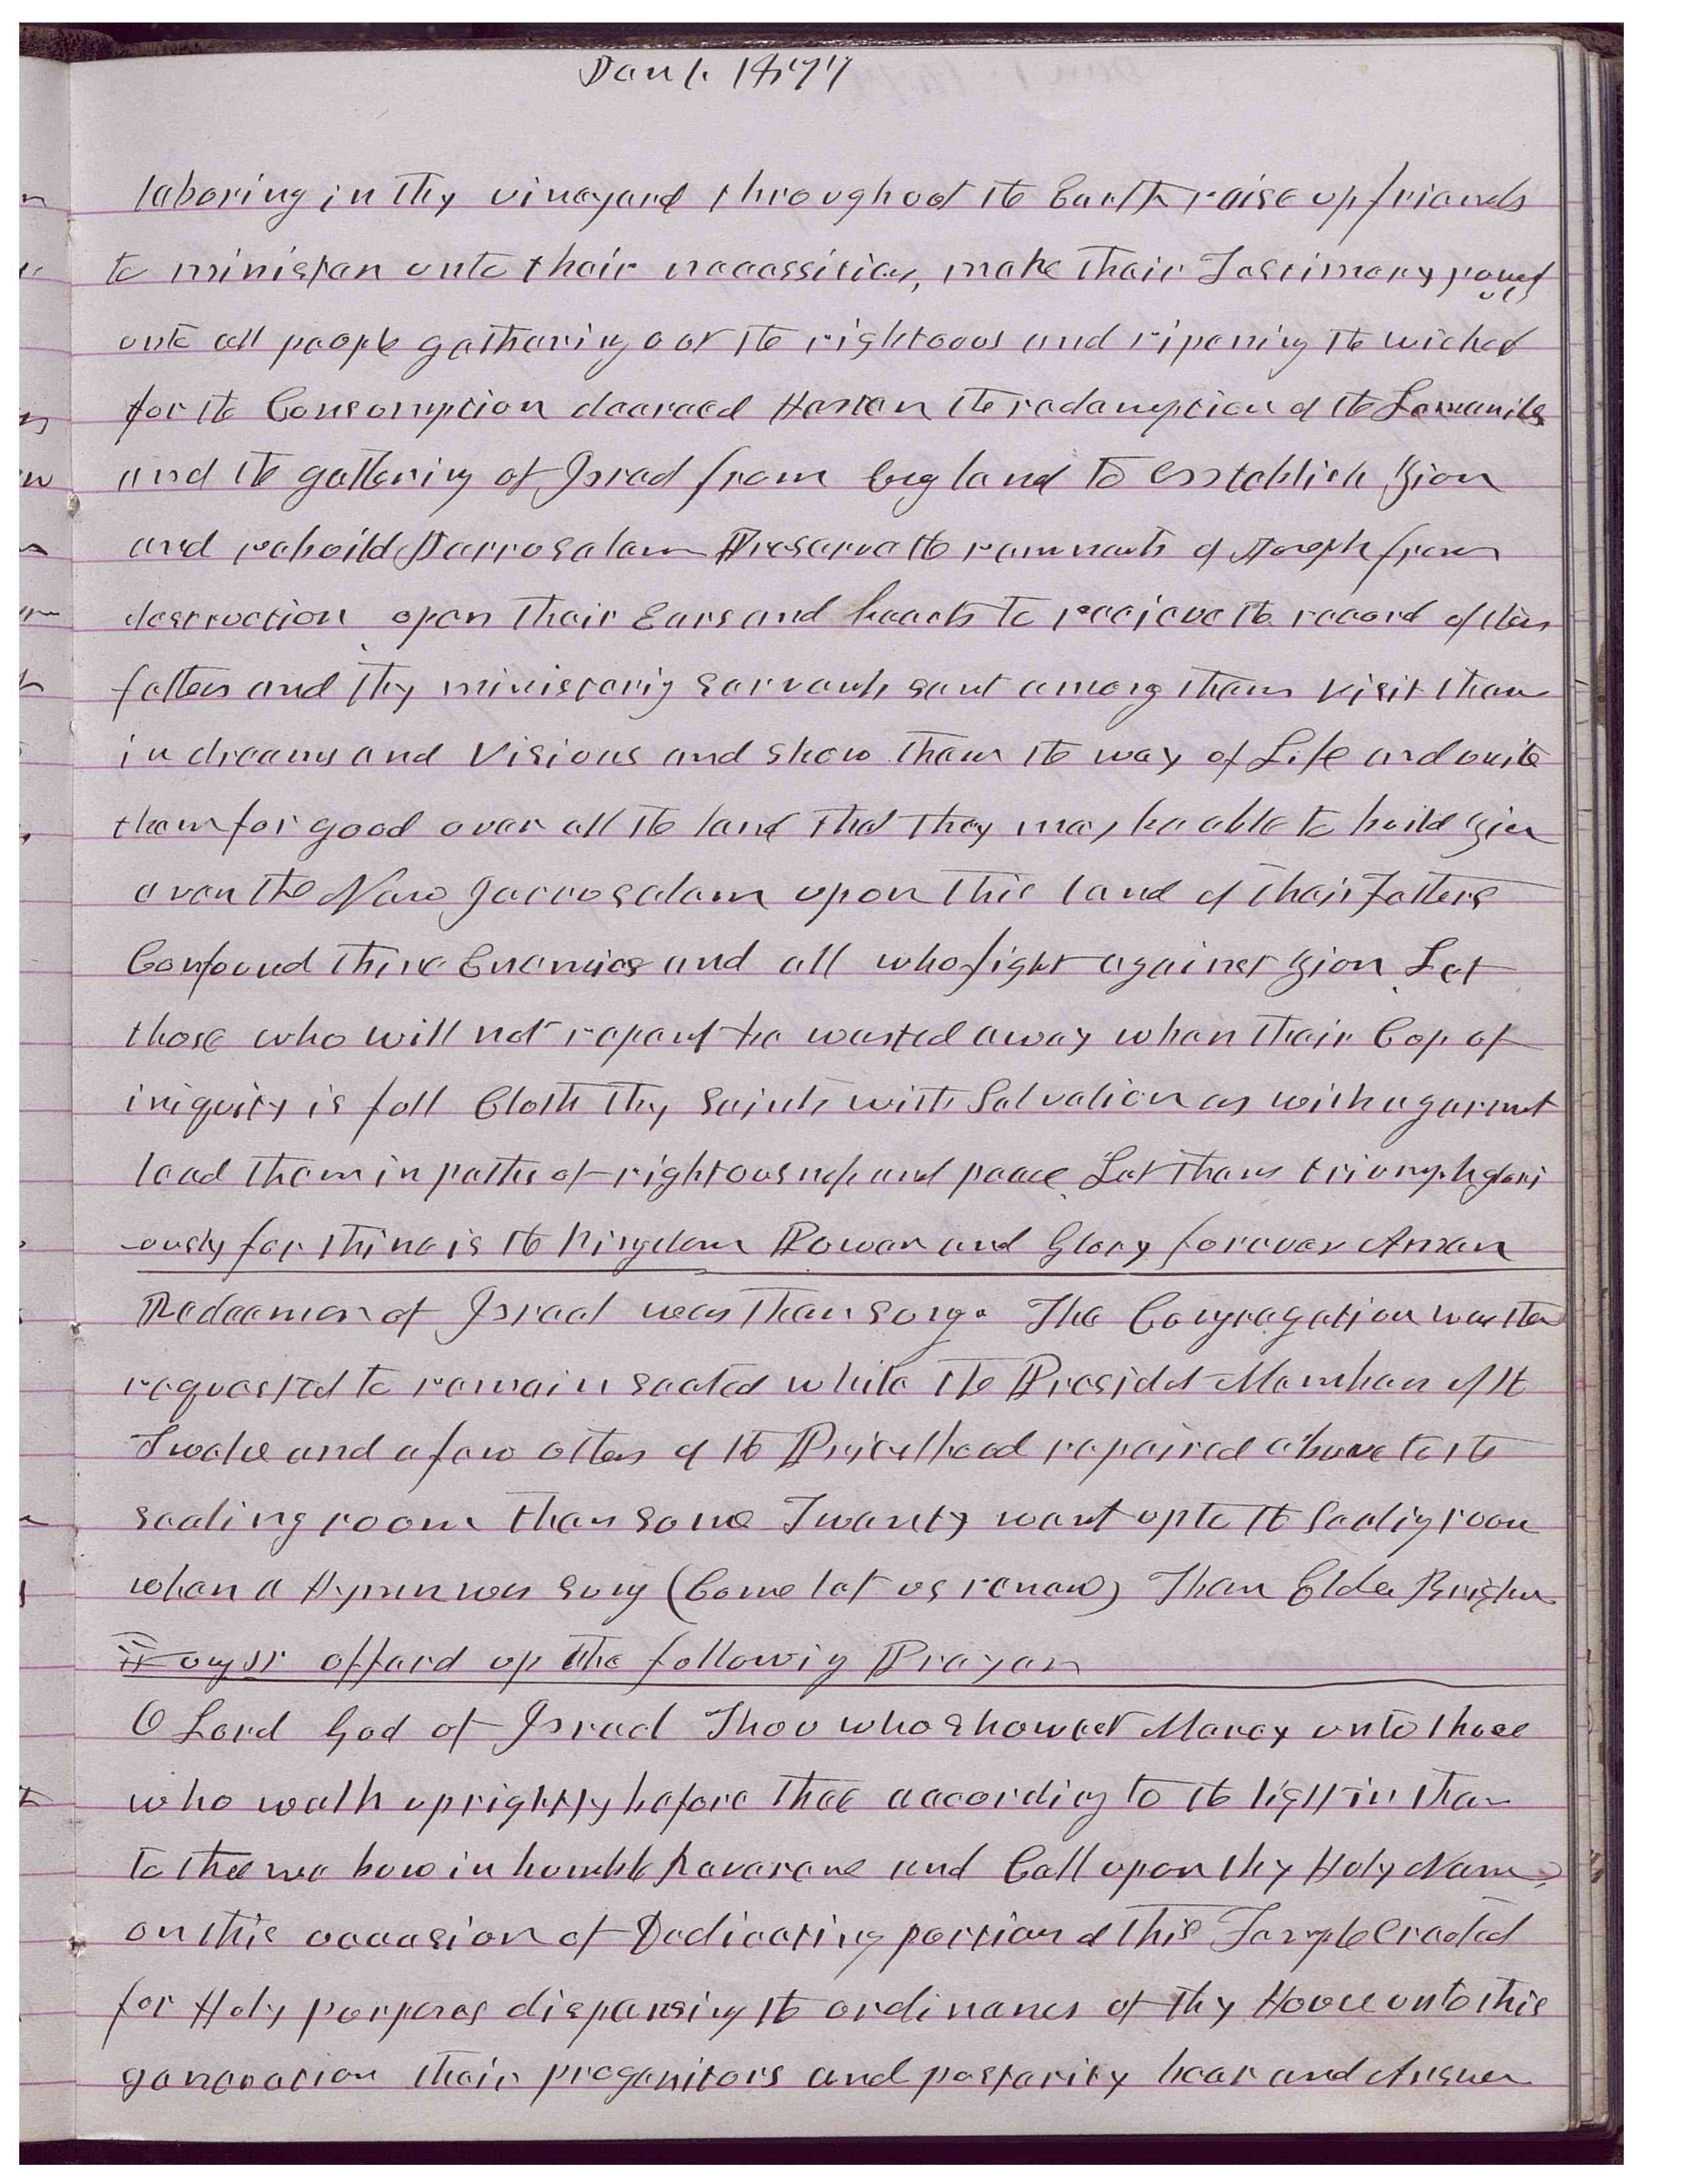 Jan 1. 1877
laboring in thy vineyard throughout the Earth raise up friends
to minister unto their necessities, make their Testimony powerful
unto all people gathering out the righteous and ripening the wicked
for the Consumption decreed Hasten the redemption of the Lamanites
and the gathering of Israel from Evg land to esstablish Zion
and rebuild Jerrusalem Preserve the remnants of Joseph from
destruction open their Ears and hearts to recieve the record of their
fathers and thy ministering servants sent among them visit them
in dreams and Visions and show them the way of Life and unite
them for good over all the land that they may be able to build Zion
even the New Jerrusalem upon this land of their Fathers
Confound thine Enemies and all who fight against Zion Let
those who will not repent be wasted away when their Cup of
iniquity is full Cloth thy Saints with Salvation as with a garment
lead them in paths of rightousness and peace Let them triumph glori
-ously for thine is the Kingdom Power and Glory forever Amen
Redeemer of Israel was then sung. The Congregation was then
requested to remain seated while the Presidet Members of the
Twelve and a few others of the Priesthood repaired above to the
sealing room then some Twenty went up to the Sealing room
when a Hymn was sung (Come let us renew) Then Elder Brigham
Young Jr offerd up the following Prayer
O Lord God of Israel Thou who showest Mercy unto those
who walk uprightly before thee according to the light in them
to thee we bow in humble reverence and Call upon thy Holy Name
on this occasion of Dedicating portions of this Temple Erected
for Holy purposes dispensing the ordinances of thy House unto this
generation their progenitors and posterity hear and Answer